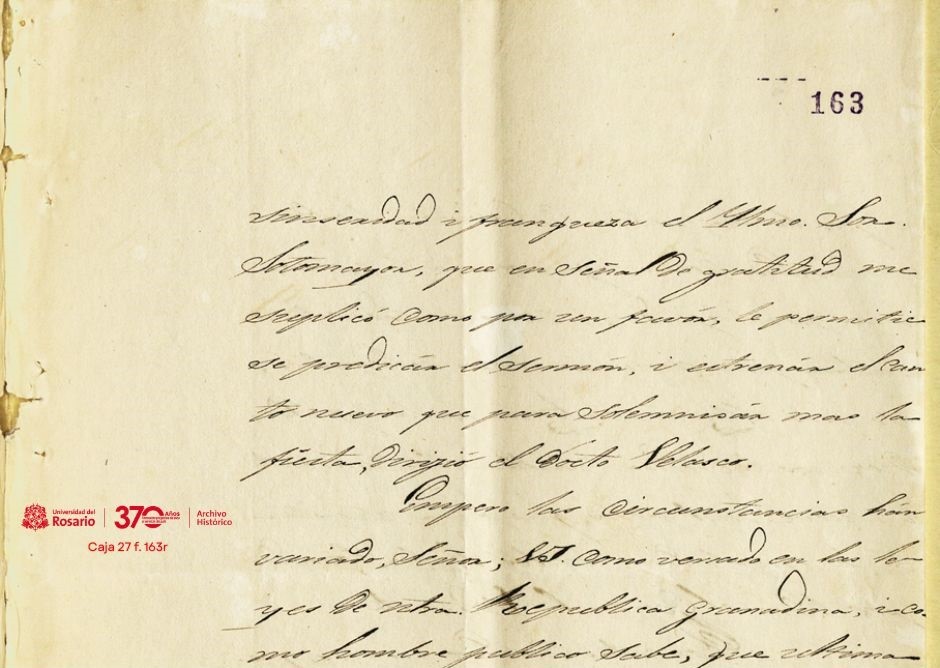 163
sinseridad i franqueza el Ylmo. Sor.
Sotomayor, que en señal de gratitud me
suplicó como por un favór, le permitie
se predicár el sermón, i estrenár el can
to nuevo que para solemnisár mas la
fiesta, dirijió el Docto Velasco.
Empero las circunstancias hán
variado, Señor; como versado en las le-
yes de ntra. Republica Granadina, i co-
mo hombre publico sabe, que ultima
Universidad del
Rosario
370 Años
Archivo
Histórico
Caja 27 f. 163r